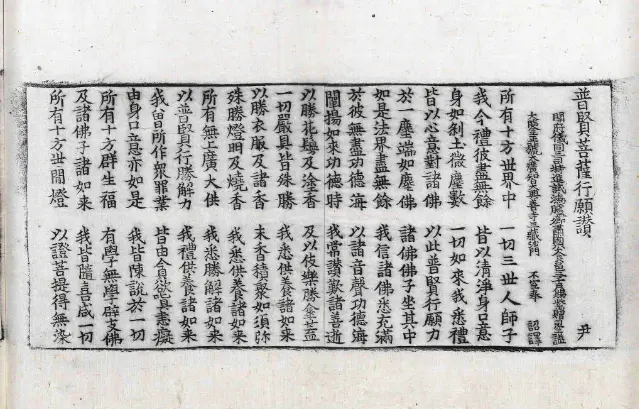 普賢菩薩行願讚 尹
開府儀同三司特進試鴻臚卿肅國公食邑三千戶賜紫贈司空謚
大鑒正號大廣智大興善寺三藏沙門 不空奉 詔譯
所有十方世界中 一切三世人師子
我今禮彼盡無餘 皆以清淨身口意
身如刹土微塵數 一切如來我悉禮
皆以心意對諸佛 以此普賢行願力
於一塵端如塵佛 諸佛佛子坐其中
如是法界盡無餘 我信諸佛悉充滿
於彼無盡功德海 以諸音聲功德海
闡揚如來功德時 我常讚歎諸善逝
以勝花鬘及塗香 及以伎樂勝傘蓋
一切嚴具皆殊勝 我悉供養諸如來
以勝衣服及諸香 末香積聚如須弥
殊勝燈明及燒香 我悉供養諸如來
所有無上廣大供 我悉勝解諸如來
以普賢行勝解力 我禮供養諸如來
我曾所作衆罪業 皆由貪慾瞋恚癡
由身口意亦如是 我皆陳說於一切
所有十方群生福 有學無學辟支佛
及諸佛子諸如來 我皆隨喜咸一切
所有十方世間燈 以證菩提得無染